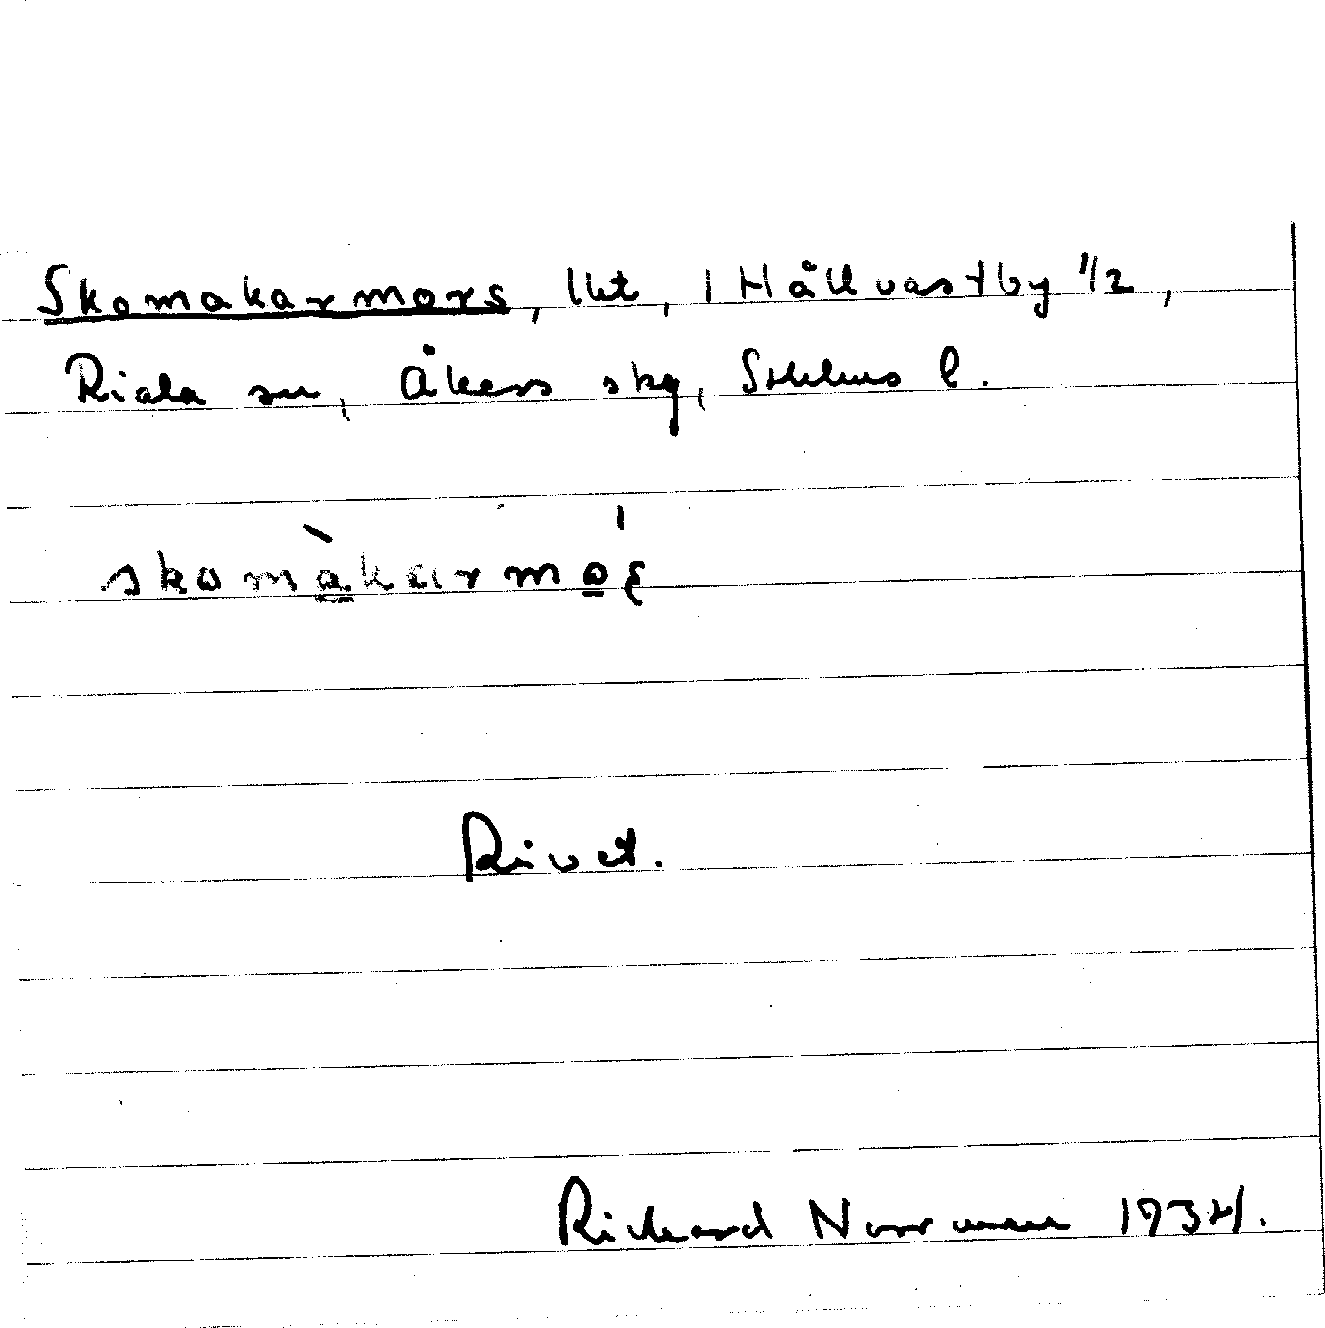 Skomakarmors, lht, i Hällvastby 1/2,
Riala sn, Åkers skg, Sthlms l.
skomàkarmo̍ʂ
Rivet.
Richard Norrman 1934.